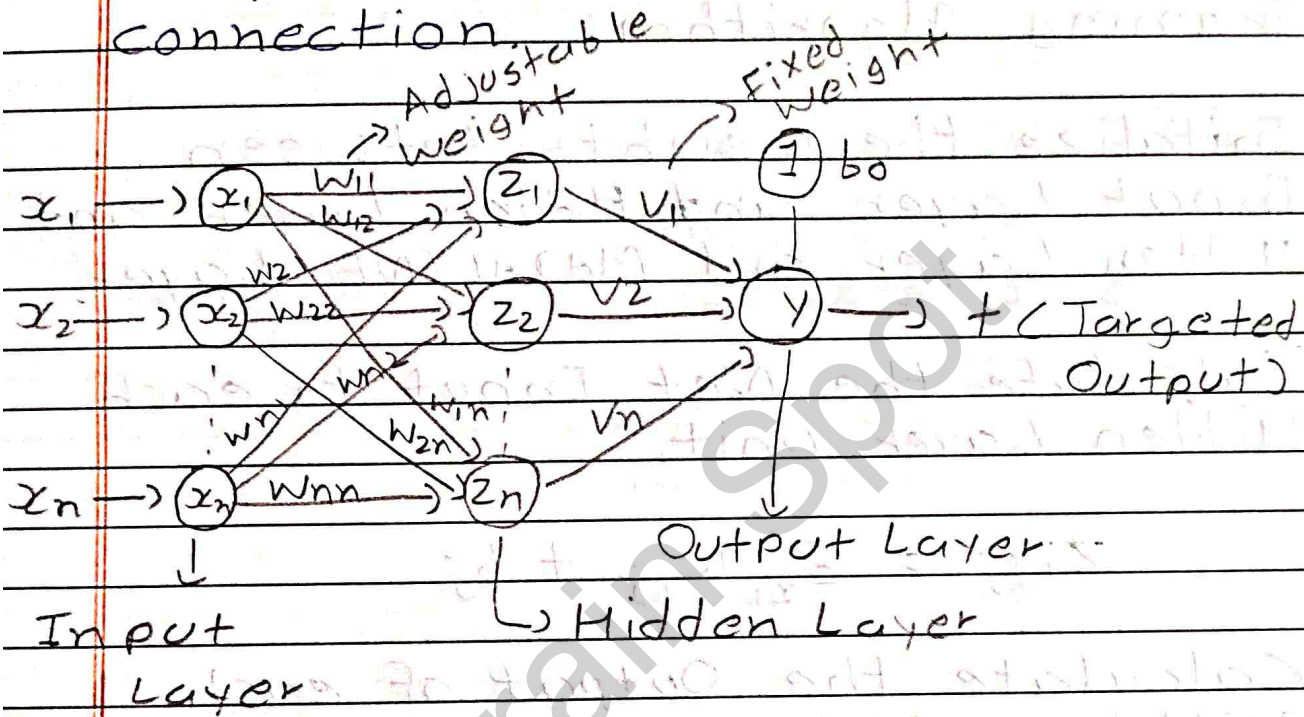 connection
Adjustable
weight
Fixed
weight
1 bo
x1 x1 W11 Z1 V1
W12
W2
x2 x2 W22 Z2 V2 Y t (Targeted
Output)
wn wn2 W1n
W2n Vn
xn xn Wnn Zn
Output Layer
Input Hidden Layer
Layer